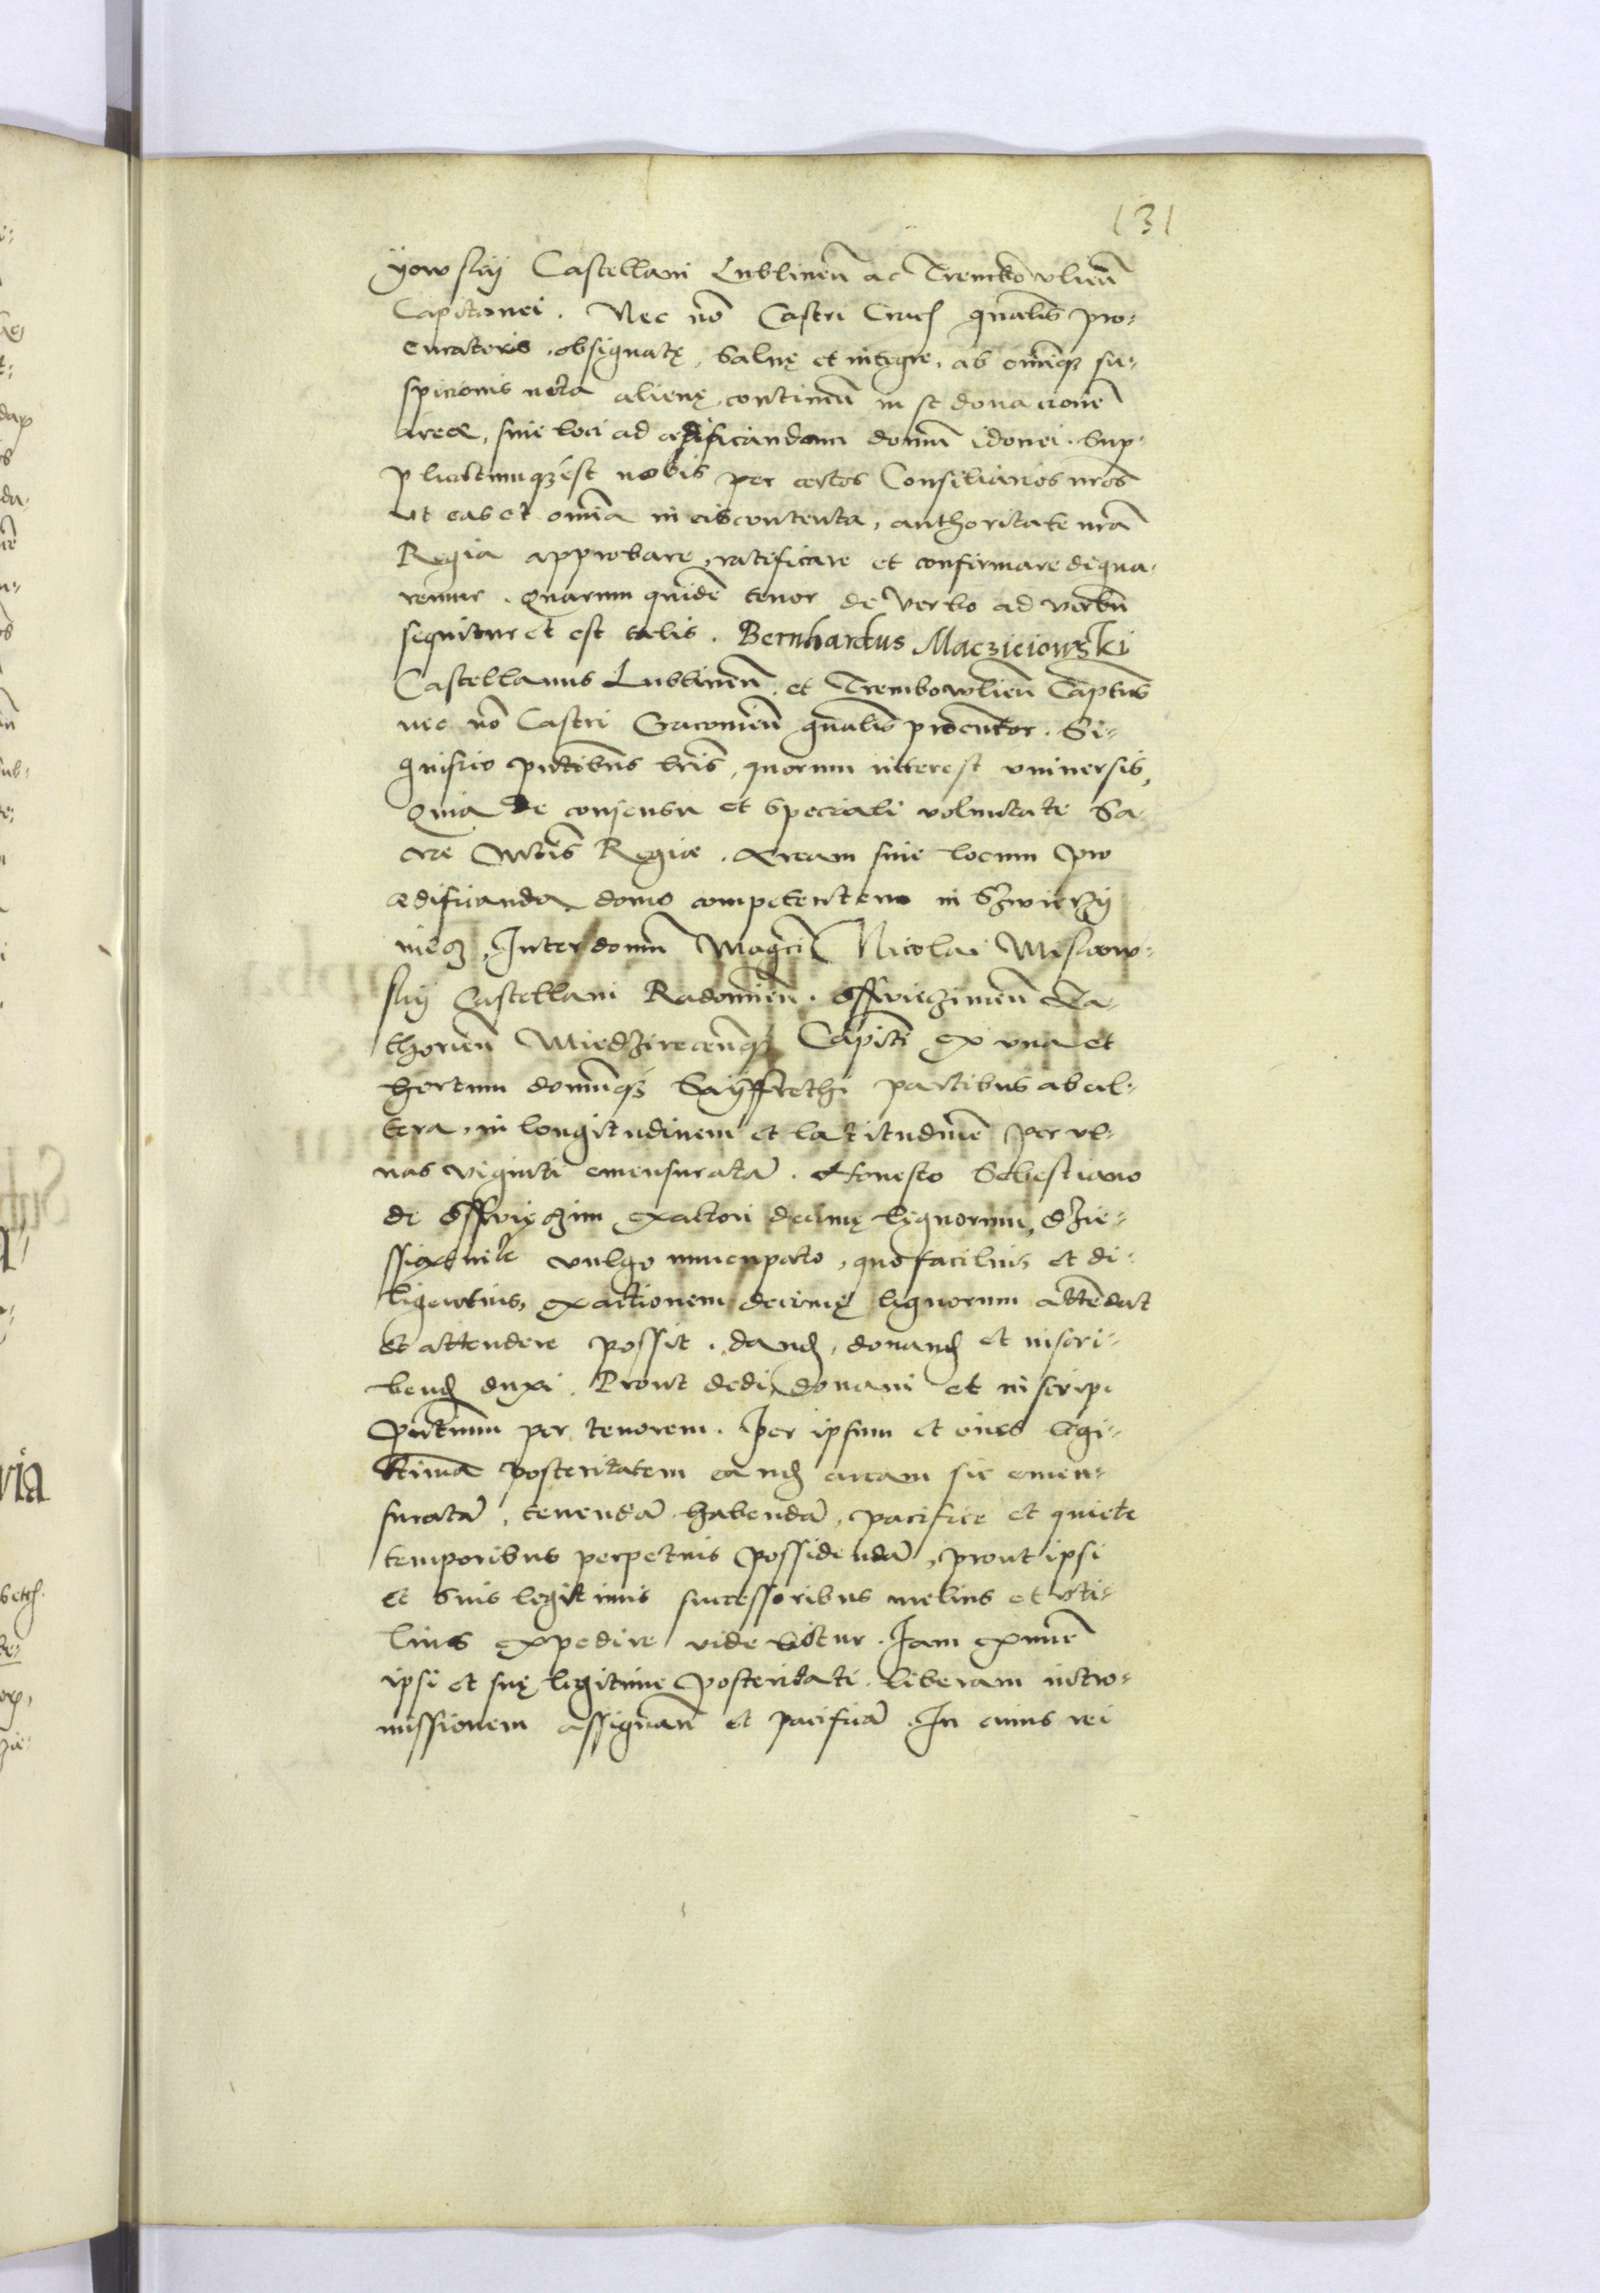 131
yowskij Castellani Lublineñ ac Trembowlieñ
Capitanei. Nec nõ Castri Craco͂ gnalis pro-
curatoris obsignatę, Salvę et integre, ab omniq; su-
spicionis nota alienę, continen̄ in se donacionẽ
areæ, sive loci ad ædificandam domũ idonei. Sup-
plicatumq; est nobis per certos Consiliarios nr̃os
ut eas et om̃ia in eis contenta, authoritate nr̃a
Regia approbare, ratificare et confirmare digna-
remur. Quarum quidẽ tenor de verbo ad verbũ
sequitur et est talis. Bernhardus Macziciowski
Castellanus Lublineñ et Trembowlieñ Captũs
nec nõ Castri Cracovieñ gñalis procutor. Si-
gnifico pñtibus lr̃is, quorum interest universis,
Quia de consensu et speciali voluntate Sa-
cre Mtis Regiæ. Aream sive locum pro
ædificanda domo competentem in Szwierzy
niecz, Inter domũ Magci Nicolai Miskow-
skij Castellani Radomieñ. Osswieczimeñ Za-
thorieñ Miedzireceñq; Capiti ex una et
hortum domũq; Sayffrethi partibus ab al-
tera, in longitudinem et latitudinẽ per ul-
nas viginti emensuratã. Honesto Sebestiano
de Osswięczim exactori decimę lignorum, dzie-
ssię vulgo nuncupato, quo facilius et di-
ligentius, exactionem decimę lignorum attẽdat
et attendere possit. dand, donand et inscri-
bend duxi. Prout dedi, donavi et inscripsi
pñtium per tenorem. Per ipsum et eius legi-
timã posteritatem eand aream sic emen-
suratã, tenendã habendã, pacifice et quiete
temporibus perpetuis possidendã, prout ipsi
et suis legittimis successoribus melius et uti-
lius expedire videbitur. Iam exnunc
ipsi et suę legitime posteritati liberam intro-
missionem assignan̄ et pacificã. In cuius rei